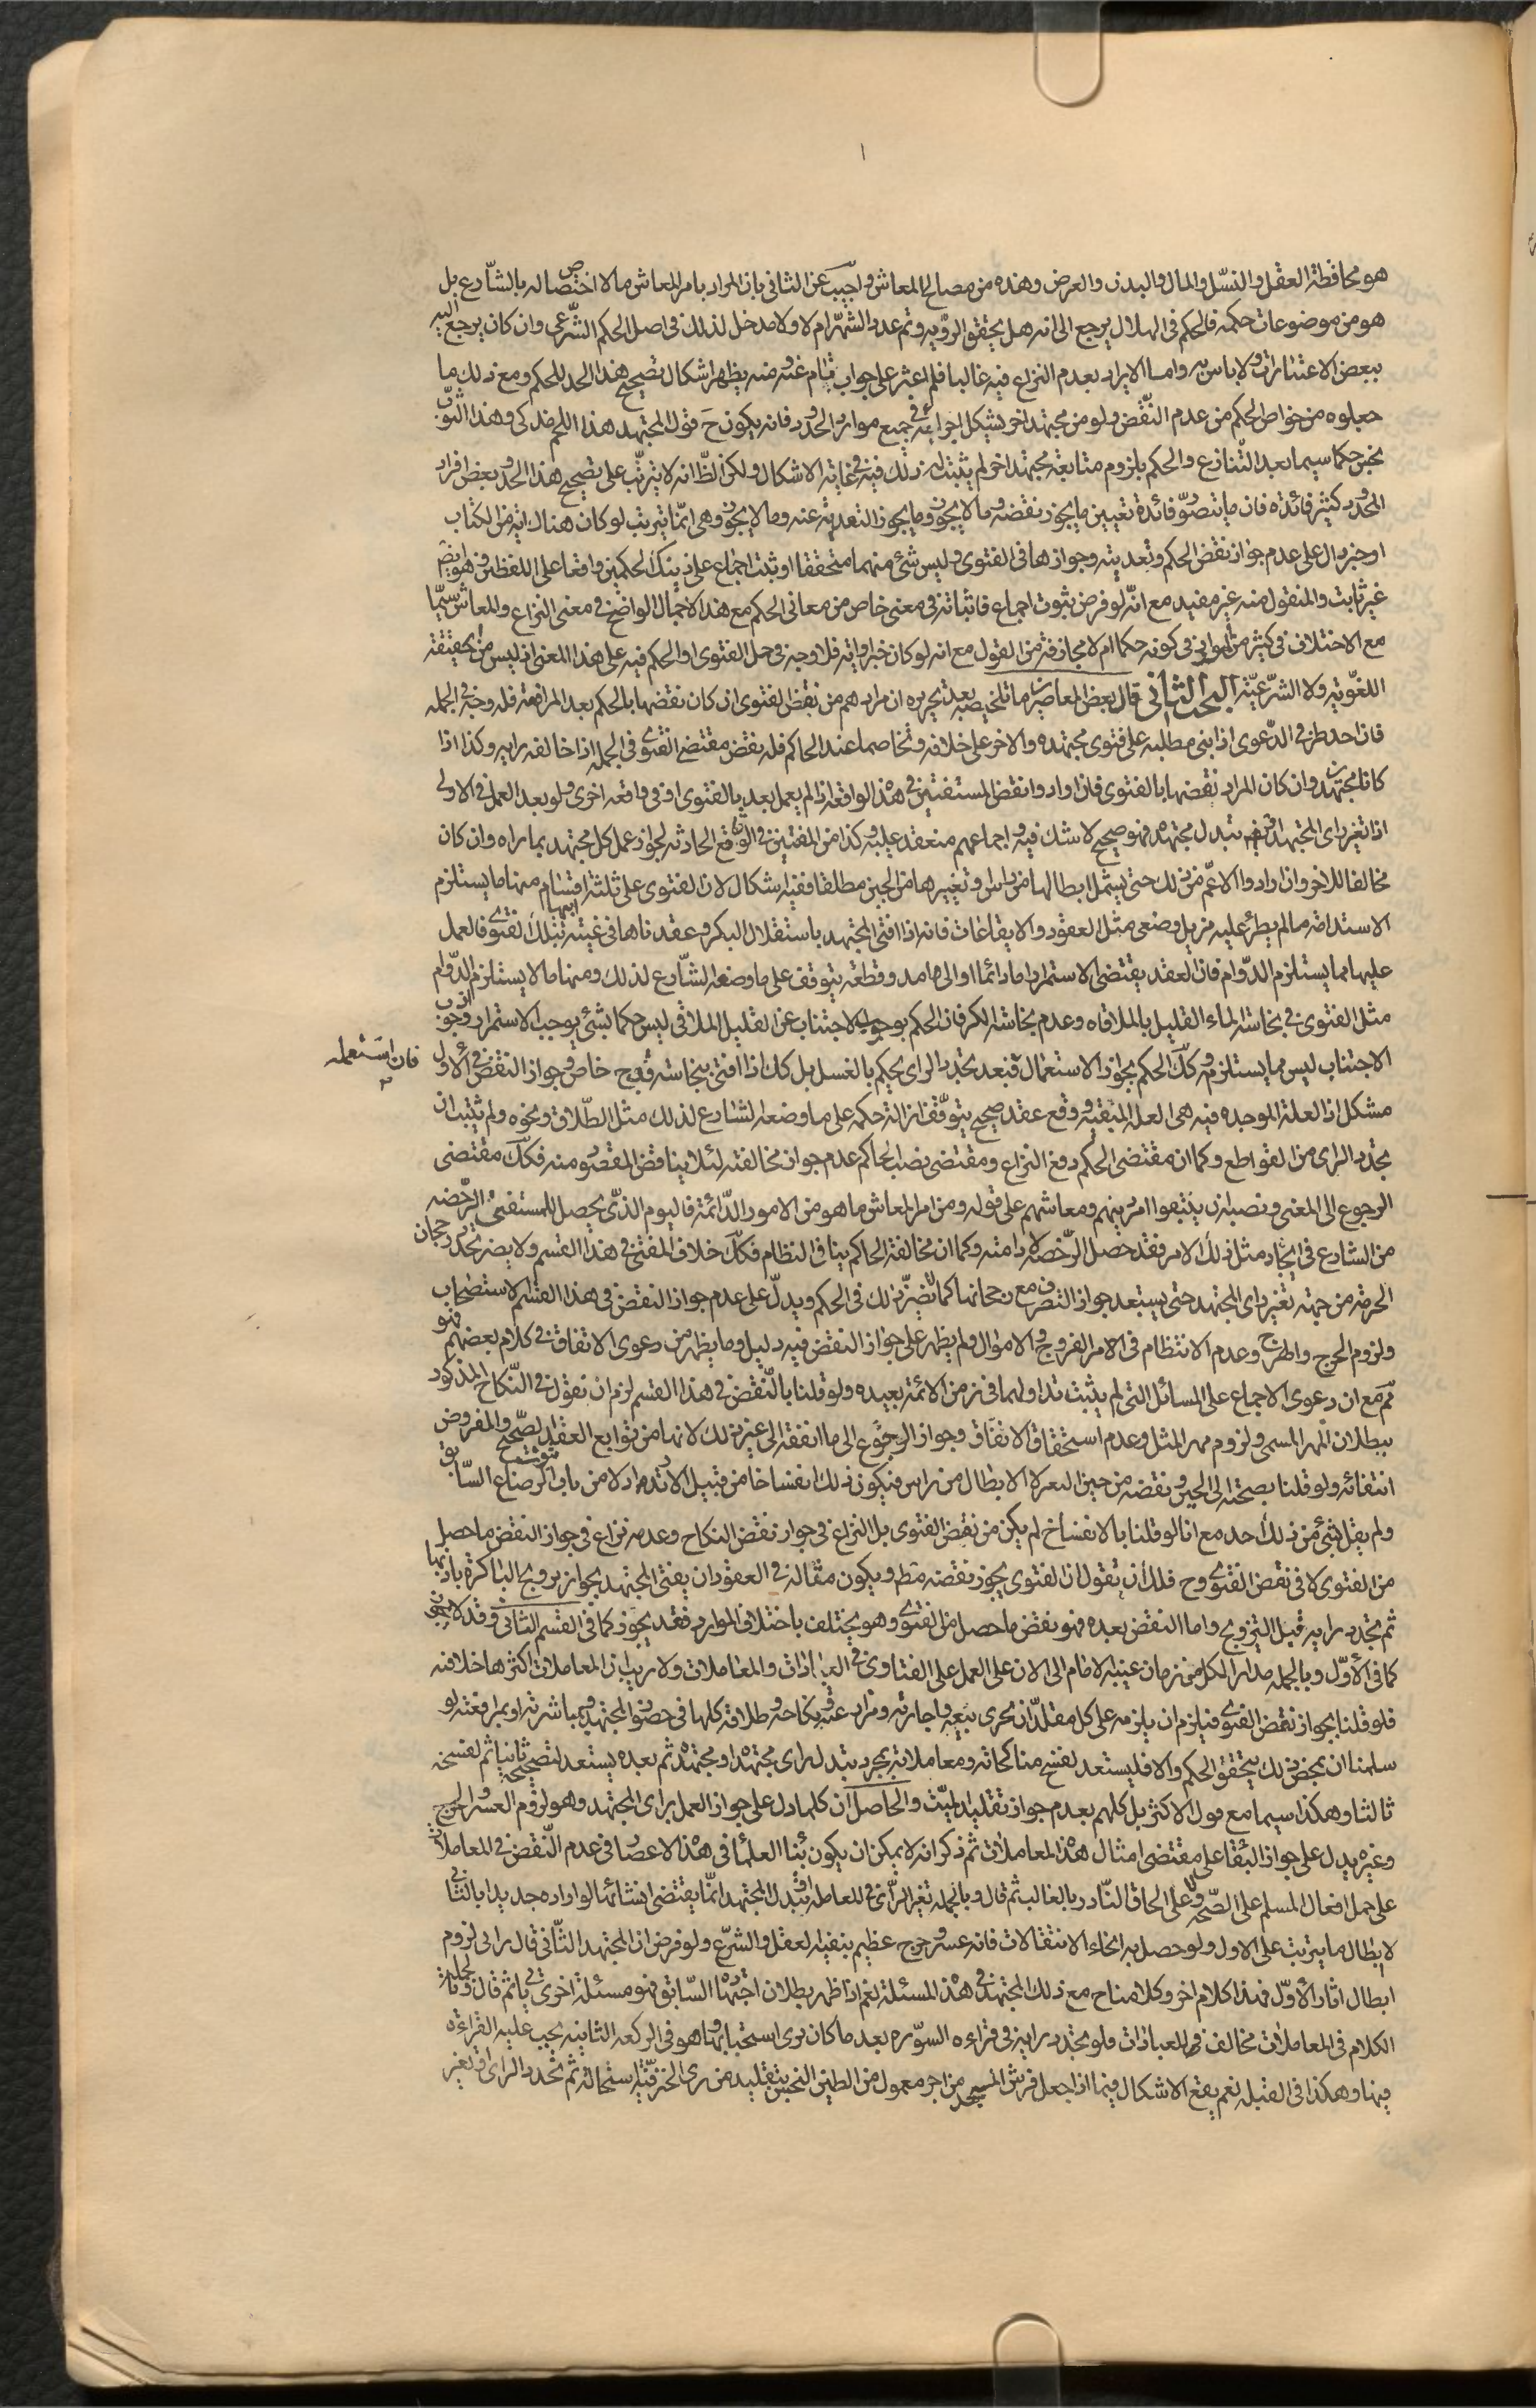 هو محافظة العقل والنسل والمال والبدن والعرض وهذه من مصالح المعاش واجيب عن الثاني بان المراد بامر المعاش ما لا اختصاص له بالشارع بل
هو من موضوعات حكمه فالحكم في الهلال يرجع الى انه هل يحقق الرؤيه وتم عدد الشهر ام لا ولا مدخل لذلك في اصل الحكم الشرعي وان كان يرجع اليه
ببعض الاعتبارات ولا باس به واما الايراد بعدم النزاع فيه غالبا فلم اعثر على جواب تام عنه ومنه يظهر اشكال تصحيح هذا الحد للحكم ومع ذلك ما
جعلوه من خواص الحكم من عدم النقض ولو من مجتهد اخر يشكل اجرائه في جميع موارد الحدود فانه يكون ح قول المجتهد هذا اللحم مذكى وهذا الثوب
نجس حكما سيما بعد التنازع والحكم بلزوم متابعة مجتهد اخر لم يثبت له ذلك فيه في غاية الاشكال ولكن الظ انه لا يترتب على تصحيح هذا الحد وبعض افراد
المحدود كثير فائدة فان ما يتصور فائدة تعيين ما يجوز نقضه وما لا يجوز وما يجوز التعدية عنه وما لا يجوز وهي انما يترتب لو كان هناك اية من الكتاب
او خبر دال على عدم جواز نقض الحكم وتعديته وجوازها في الفتوى وليس شئ منهما متحققا او ثبت اجماع على ذينك الحكمين واقعا على اللفظين وهو ايضا
غير ثابت والمنقول منه غير مفيد مع انه لو فرض ثبوت اجماع فاثباته في معنى خاص من معاني الحكم مع هذا الاجمال الواضح في معنى النزاع والمعاش سيما
مع الاختلاف في كثير من الموارد في كونه حكما ام لا مجازفة من القول مع انه لو كان خبر او اية فلا وجه في حمل الفتوى او الحكم فيه على هذا المعنى اذ ليس من حقيقته
اللغوية ولا الشرعية البحث الثاني قال بعض المعاصرين ما تلخيصه بعد تحريره ان مرادهم من نقض الفتوى ان كان نقضها بالحكم بعد المرافعة فله وجه في الجملة
فان احد طرفي الدعوى اذا بنى مطلبه على فتوى مجتهده والاخر على خلافه وتخاصما عند الحاكم فله نقض مقتضى الفتوى في الجملة اذا خالفه رايه وكذا اذا
كانا مجتهدين وان كان المراد نقضها بالفتوى فان ارادوا نقض المستفتين في هذه الواقعة اذا لم يعمل بعد بالفتوى او في واقعة اخرى ولو بعد العمل في الاولى
اذا تغير راى المجتهد او تبدل مجتهده فهو صحيح لا شك فيه واجماعهم منعقد عليه وكذا من المفتين في الوقائع الحادثه لجواز عمل كل مجتهد بما راه وان كان
مخالفا للاخر وان ارادوا الاعم من ذلك حتى يشمل ابطالها من راس وتغييرها من الحين مطلقا ففيه اشكال لان الفتوى على ثلثة اقسام منها ما يستلزم
الاستدامة ما لم يطرء عليه مزيل وضعي مثل العقود والايقاعات فانه اذا افتى المجتهد باستقلال البكر وعقدناها في غيبة ابيها بتلك الفتوى فالعمل
عليها مما يستلزم الدوام فان العقد يقتضى الاستمرار اما دائما او الى ما مد وقطعه يتوقف على ما وضعه الشارع لذلك ومنها ما لا يستلزم الدوام
مثل الفتوى في نجاسة الماء القليل بالملاقاه وعدم نجاسة الكر فان الحكم بوجوب الاجتناب عن القليل الملاقي ليس حكما بشئ يوجب الاستمرار اذ وجوب
الاجتناب ليس مما يستلزمه وكك الحكم بجواز الاستعمال فبعد تجدد الراى يحكم بالغسل بل كك اذا افتى بنجاسته في قدح خاص وجواز النقض في الاول
فان استعمله
مشكل اذ العلة الموجده فيه هي العلة المبقيه ووقع عقد صحيح يتوقف ازالة حكمه على ما وضعه الشارع لذلك مثل الطلاق ونحوه ولم يثبت ان
تجدد الراى من القواطع وكما ان مقتضى الحكم دفع النزاع ومقتضى نصب الحاكم عدم جواز مخالفته لئلا يناقض المقصود منه فكك مقتضى
الرجوع الى المفتى ونصبه ان يبتنوا امر دينهم ومعاشهم على قوله ومن امر المعاش ما هو من الامور الدائمة فاليوم الذي يحصل للمستفتى الرخصه
من الشارع في ايجاد مثل ذلك الامر فقد حصل الرخصة لادامته وكما ان مخالفة الحاكم ينافي النظام فكك خلاف المفتى في هذا القسم ولا يضر تجدد رجحان
الحرمة من جهة تغير راى المجتهد حتى يستبعد جواز التصرف مع رجحانها كما لا يضر ذلك في الحكم ويدل على عدم جواز النقض في هذا القسم الاستصحاب
ولزوم الحرج والهرج وعدم الانتظام في الامر الفروج والاموال ولم يظهر على جواز النقض فيه دليل وما يظهر من دعوى الاتفاق في كلام بعضهم فهو
ثم مع ان دعوى الاجماع على المسائل التي لم يثبت تداولها في زمن الائمة بعيده ولو قلنا بالنقض في هذا القسم لزم ان نقول في النكاح المذكور
ببطلان المهر المسمى ولزوم مهر المثل وعدم استحقاق الانفاق وجواز الرجوع الى ما انفقه الى غير ذلك لانها من توابع العقد الصحيح والمفروض
انتفائه ولو قلنا بصحته الى الحين ونقضه من حين التغير لا الابطال من راس فيكون ذلك انفساخا من قبيل الارتداد لا من باب الرضاع السابق
ولم يقل بشئ من ذلك احد مع انا لو قلنا بالانفساخ لم يكن من نقض الفتوى بل النزاع في جواز نقض النكاح وعدمه نزاع في جواز النقض ما حصل
من الفتوى لا في نقض الفتوى وح فلك ان تقول ان الفتوى يجوز نقضه مط ويكون مثاله في العقود ان يفتى المجتهد بجواز تزويج الباكرة باذنها
ثم تجدد رايه قبل التزويج واما النقض بعده فهو نقض ما حصل من الفتوى وهو يختلف باختلاف الموارد فقد يجوز كما في القسم الثاني وقد لا يجوز
كما في الاول وبالجملة مدار الكل من زمان غيبة الامام الى الان على العمل على الفتاوى في العبادات والمعاملات ولا ريب ان المعاملات اكثرها خلافيه
فلو قلنا بجواز نقض الفتوى فيلزم ان يلزمه على كل مقلد ان يجرى بيعه واجارته ومزارعته ونكاحه وطلاقه كلها في حضور المجتهد ومباشرته او بمرافعته لو
سلمنا ان بمحض ذلك يتحقق الحكم والا فليستعد لفسخ مناكحاته ومعاملاته بمجرد تبدل راى مجتهده او مجتهده ثم بعده يستعد لتصحيحه ثانيا ثم لفسخه
ثالثا وهكذا سيما مع قول الاكثر بل كلهم بعدم جواز تقليد الميت والحاصل ان كلما دل على جواز العمل براى المجتهد وهو لزوم العسر والحرج
وغيره يدل على جواز البقاء على مقتضى امثال هذه المعاملات ثم ذكر انه لا يمكن ان يكون بناء العلماء في هذه الاعصار في عدم النقض في المعاملات
على حمل افعال المسلم على الصحة ولا على الحاق النادر بالغالب ثم قال وبالجملة تغير الراى في المعاملة او تبدل المجتهد انما يقتضى انشائها لو اراده جديدا بالثاني
لا بطال ما يترتب على الاول ولو حصل به انحاء الانتقالات فانه عسر وحرج عظيم ينفيه العقل والشرع ولو فرض ان المجتهد الثاني قال رايى لزوم
ابطال اثار الاول فهذا كلام اخر وكلامنا ح مع ذلك المجتهد في هذه المسئلة نعم اذا ظهر بطلان اجتهاده السابق فهو مسئلة اخرى ياتي ثم قال وبالجملة
الكلام في المعاملات مخالف للعبادات فلو تجدد رايه في قراءة السورة بعد ما كان يرى استحبابها وهو في الركعة الثانية يجب عليه القراءة
فيها وهكذا في القبلة نعم يقع الاشكال فيما اذا جعل فرش المسجد من اجر معمول من الطين النجس بتقليد من يرى الخزفية استحالة ثم تجدد الراى وتغير